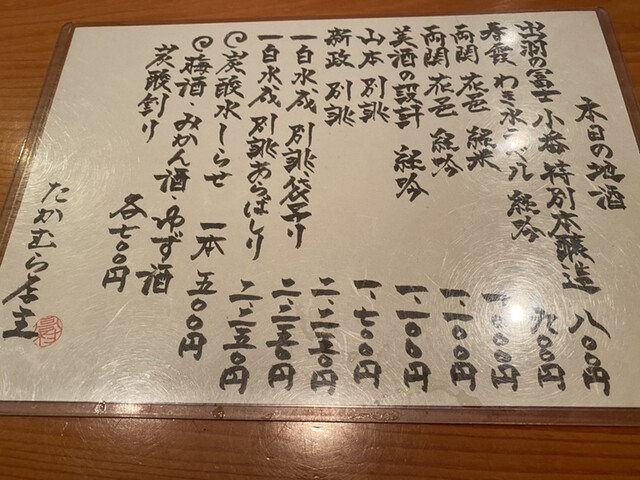 本日の地酒
出羽の冨士 小番 特別本醸造 八〇〇円
春霞 わき水ラベル 純吟 九〇〇円
両関 花邑 純米 一、〇〇〇円
両関 花邑 純吟 一、一〇〇円
美酒の設計 純吟 一、一〇〇円
山本 別誂 一、七〇〇円
新政 別誂 二、二五〇円
一白水成 別誂 袋吊り 二、二五〇円
一白水成 別誂あらばしり 二、二五〇円
◎炭酸水しらせ 一本 五〇〇円
◎梅酒・みかん酒・ゆず酒
炭酸割り 各七〇〇円
たかむら店主